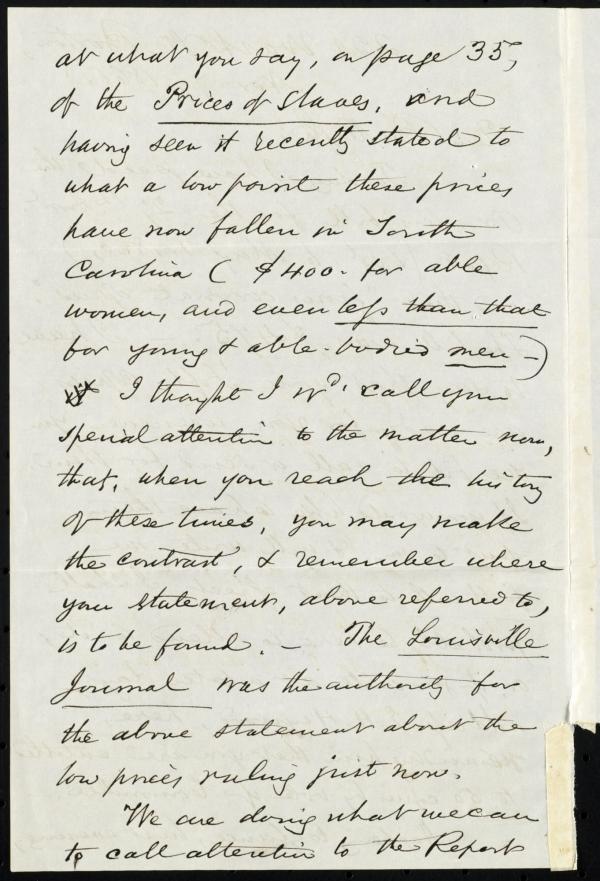 at what you say, on page 35,
of the Prices of Slaves, and
having seen it recently stated to
what a low point these prices
have now fallen in South
Carolina ( $400. for able
women, and even less than that
for young & able-bodied men - )
I thought I wd. call your
special attention to the matter now,
that, when you reach the history
of these times, you may make
the contrast, & remember where
your statement, above referred to,
is to be found. - The Louisville
Journal was the authority for
the above statement about the
low prices ruling just now.
We are doing what we can
to call attention to the Report